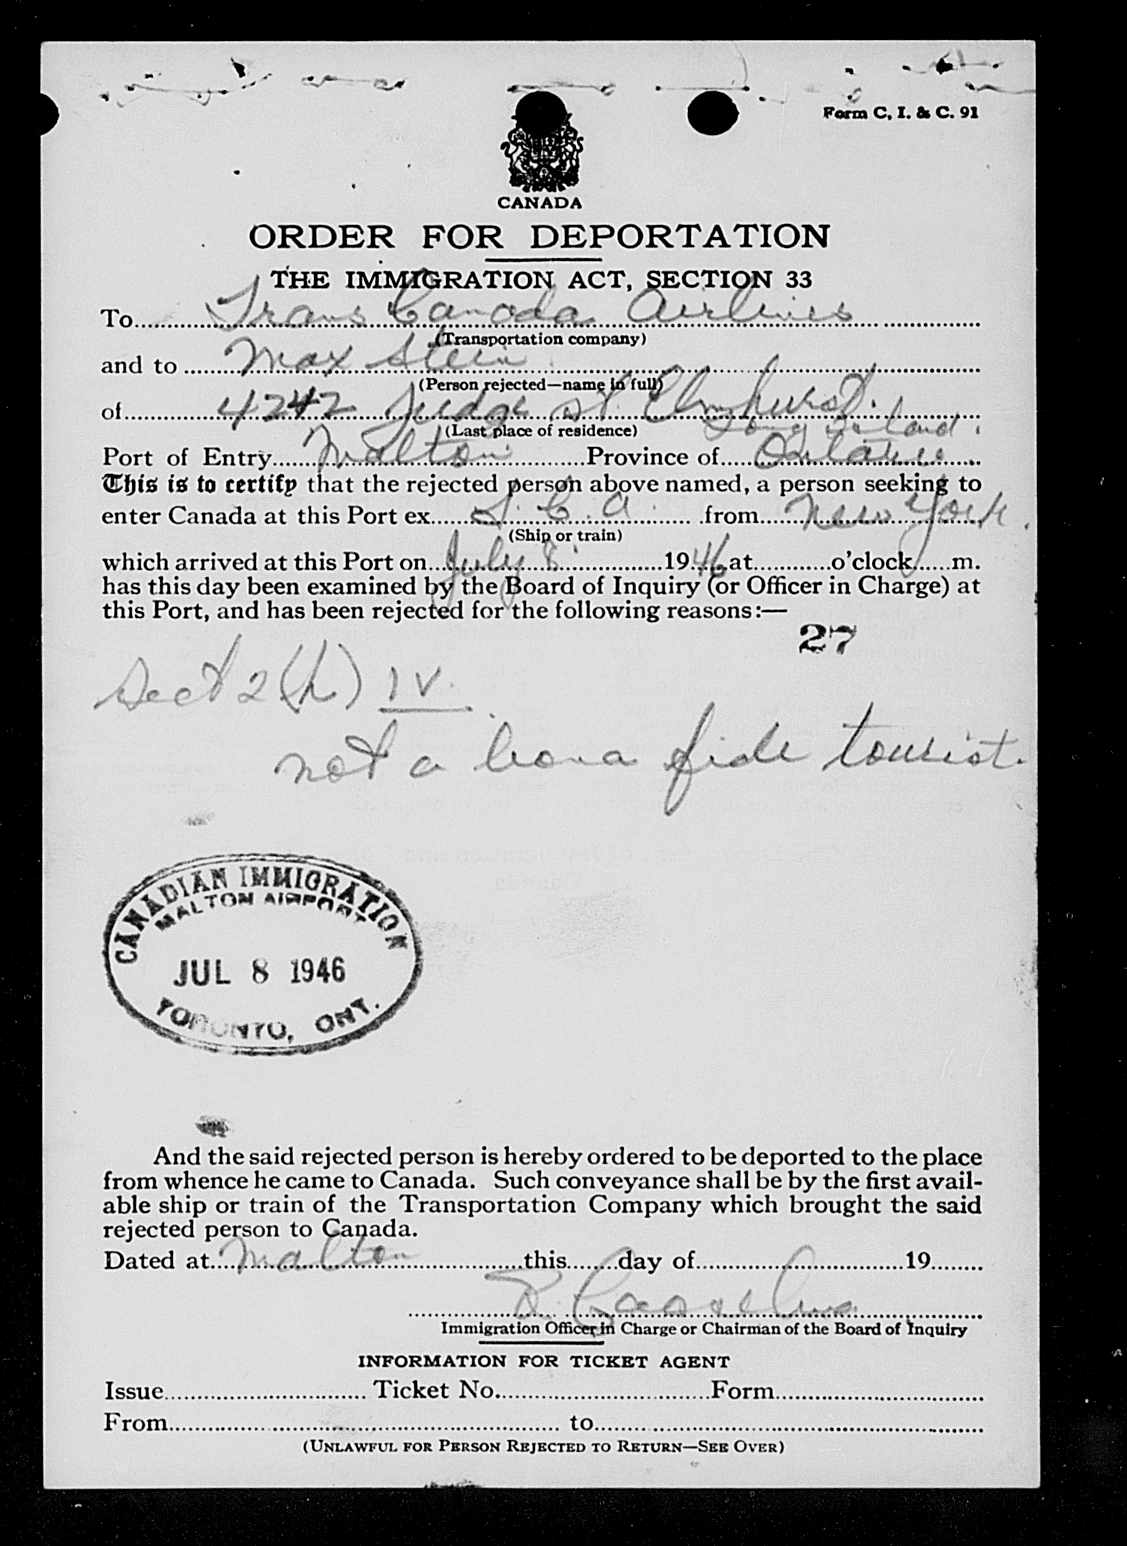 Form C. I. & C. 91
CANADA
ORDER FOR DEPORTATION
THE IMMIGRATION ACT, SECTION 33
To Trans Canada Airlines
(Transportation company)
and to Max Stein
(Person rejected—name in full)
of 4242 Judge St. Elmhurst.
(Last place of residence) Long Island.
Port of Entry Malton Province of Ontario
This is to certify that the rejected person above named, a person seeking to
enter Canada at this Port ex T. C. A. from New York.
(Ship or train)
which arrived at this Port on July 8 1946 at o'clock m.
has this day been examined by the Board of Inquiry (or Officer in Charge) at
this Port, and has been rejected for the following reasons:—
27
Sect 2 (h) IV.
not a bona fide tourist.
CANADIAN IMMIGRATION
MALTON AIRPORT
JUL 8 1946
TORONTO, ONT.
And the said rejected person is hereby ordered to be deported to the place
from whence he came to Canada. Such conveyance shall be by the first avail-
able ship or train of the Transportation Company which brought the said
rejected person to Canada.
Dated at Malton this day of 19
Immigration Officer in Charge or Chairman of the Board of Inquiry
INFORMATION FOR TICKET AGENT
Issue Ticket No. Form
From to
(UNLAWFUL FOR PERSON REJECTED TO RETURN—SEE OVER)